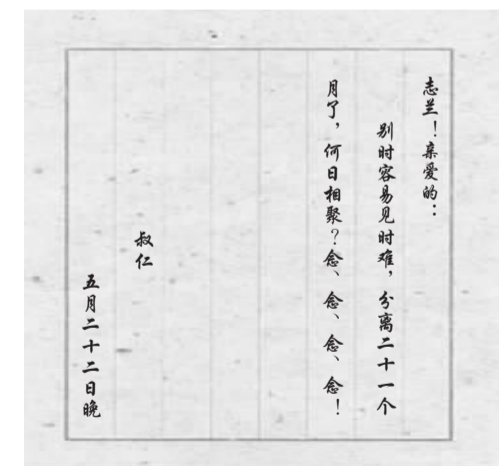 志兰！亲爱的：
别时容易见时难，分离二十一个
月了，何日相聚？念、念、念、念！
叔仁
五月二十二日晚